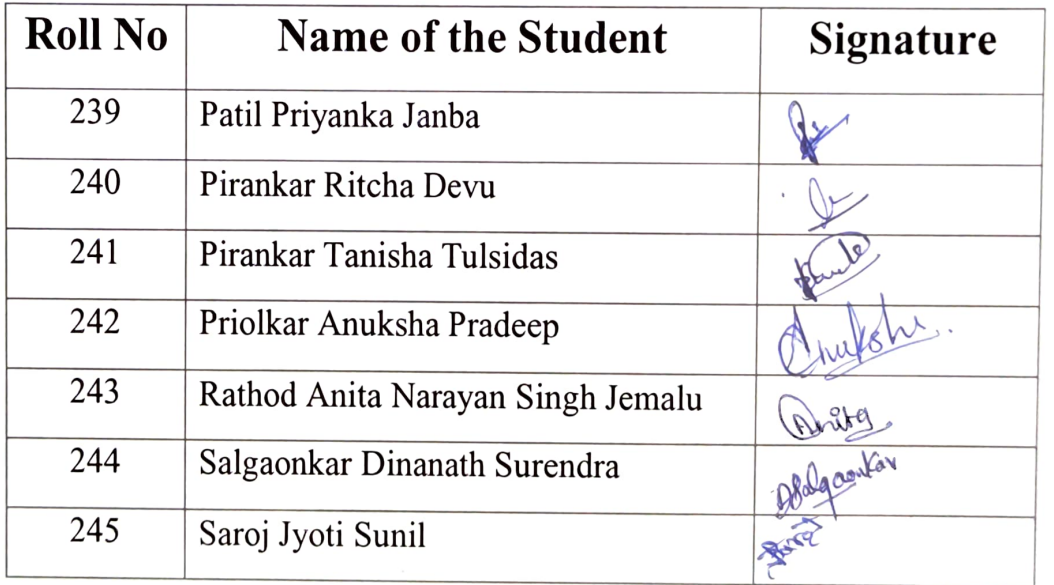 Roll No Name of the Student Signature
239 Patil Priyanka Janba
240 Pirankar Ritcha Devu
241 Pirankar Tanisha Tulsidas
242 Priolkar Anuksha Pradeep Anuksha.
243 Rathod Anita Narayan Singh Jemalu Anita
244 Salgaonkar Dinanath Surendra DSalgaonkar
245 Saroj Jyoti Sunil